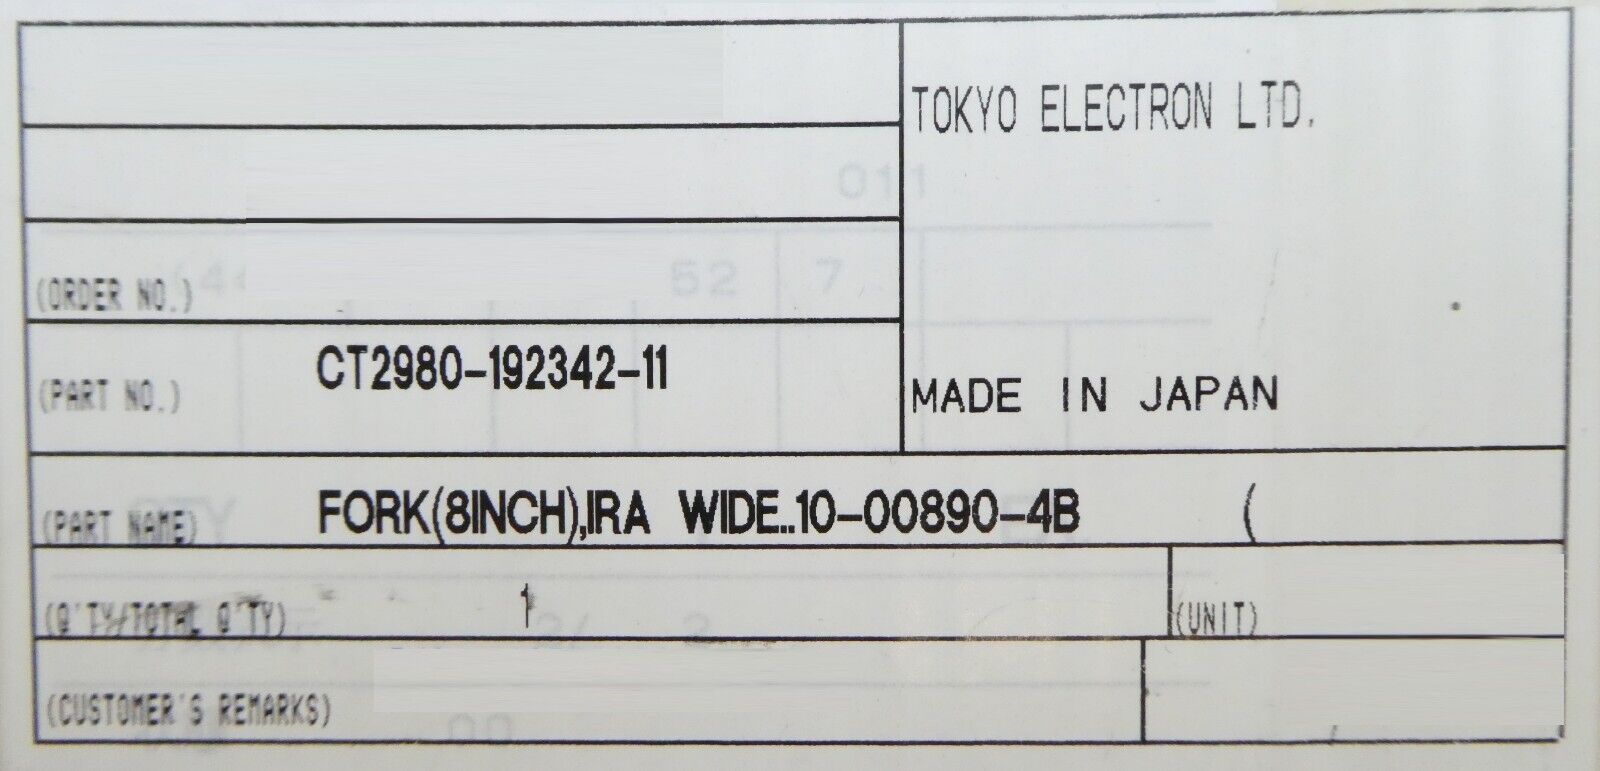 TOKYO ELECTRON LTD.
011
(ORDER NO.)
52 7
(PART NO.) CT2980-192342-11
MADE IN JAPAN
(PART NAME) FORK(8INCH),IRA WIDE..10-00890-4B (
(Q'TY/TOTAL Q'TY) 1
(UNIT)
(CUSTOMER'S REMARKS)